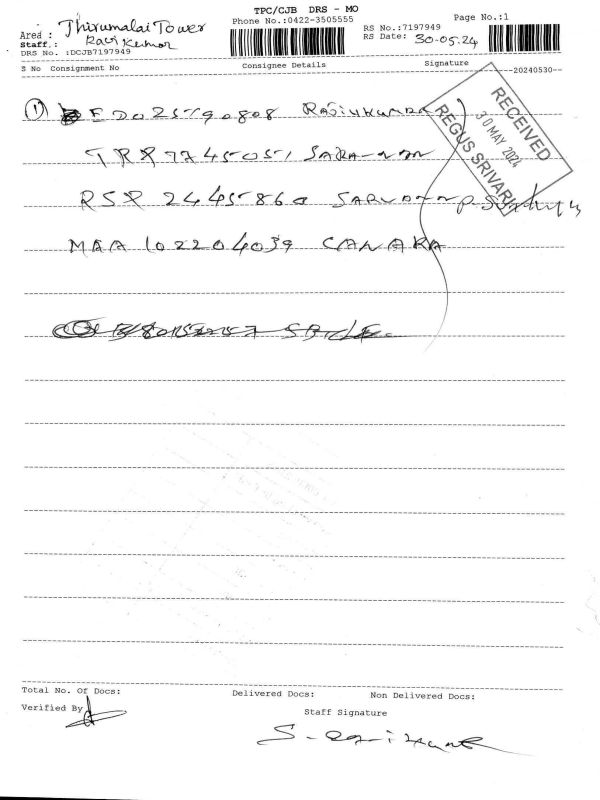 TPC/CJB DRS - MO
Phone No.:0422-3505555
Page No.:1
Ared : Thirumalai Tower
Staff.: Ravi Kumar
DRS No. :DCJB7197949
RS No.:7197949
RS Date: 30-05-24
S No Consignment No Consignee Details Signature
--20240530--
① EDO25790808
TRR 7745051 SARA
RSR 2445860
MAA 102204039 CANARA
RECEIVED
30 MAY 2024
REGUS SRIVARI
Total No. Of Docs: Delivered Docs: Non Delivered Docs:
Verified By
Staff Signature